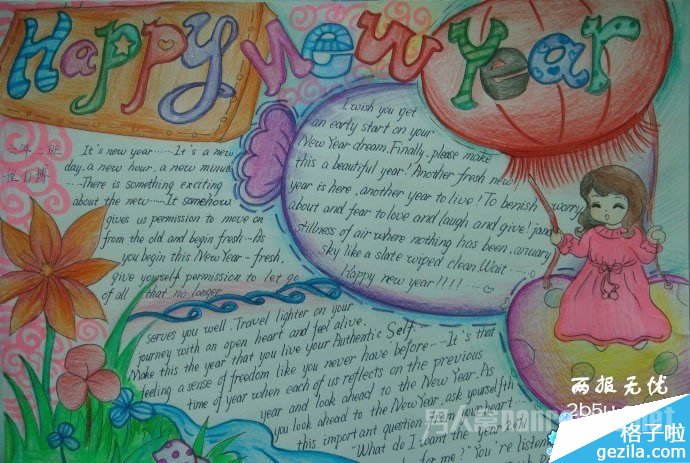 Happy New Year
六年二班
It's new year......It's a new
day, a new hour, a new minute
......There is something exciting
about the new......It somehow
gives us permission to move on
from the old and begin fresh...As
you begin this New Year - fresh,
give yourself permission to let go
of all that no longer
serves you well. Travel lighter on your
journey with an open heart and feel alive.
Make this the year that you live your Authentic Self.
feeling a sense of freedom like you never have before......It's that
time of year when each of us reflects on the previous
year and look ahead to the New Year. As
you look ahead to the New Year, ask yourselfth
this important question from your heart
"What do I want the year 2011
for me?" You're listen
I wish you get
an early start on your
New Year dream. Finally, please make
this a beautiful year! Another fresh new
year is here, another year to live! To benish worry
about and fear to love and laugh and give! jan
stillness of air where nothing has been, anuary
sky like a slate wiped clean. Wait......
Happy new year!!!!...
两报无优
格子啦
gezila.com